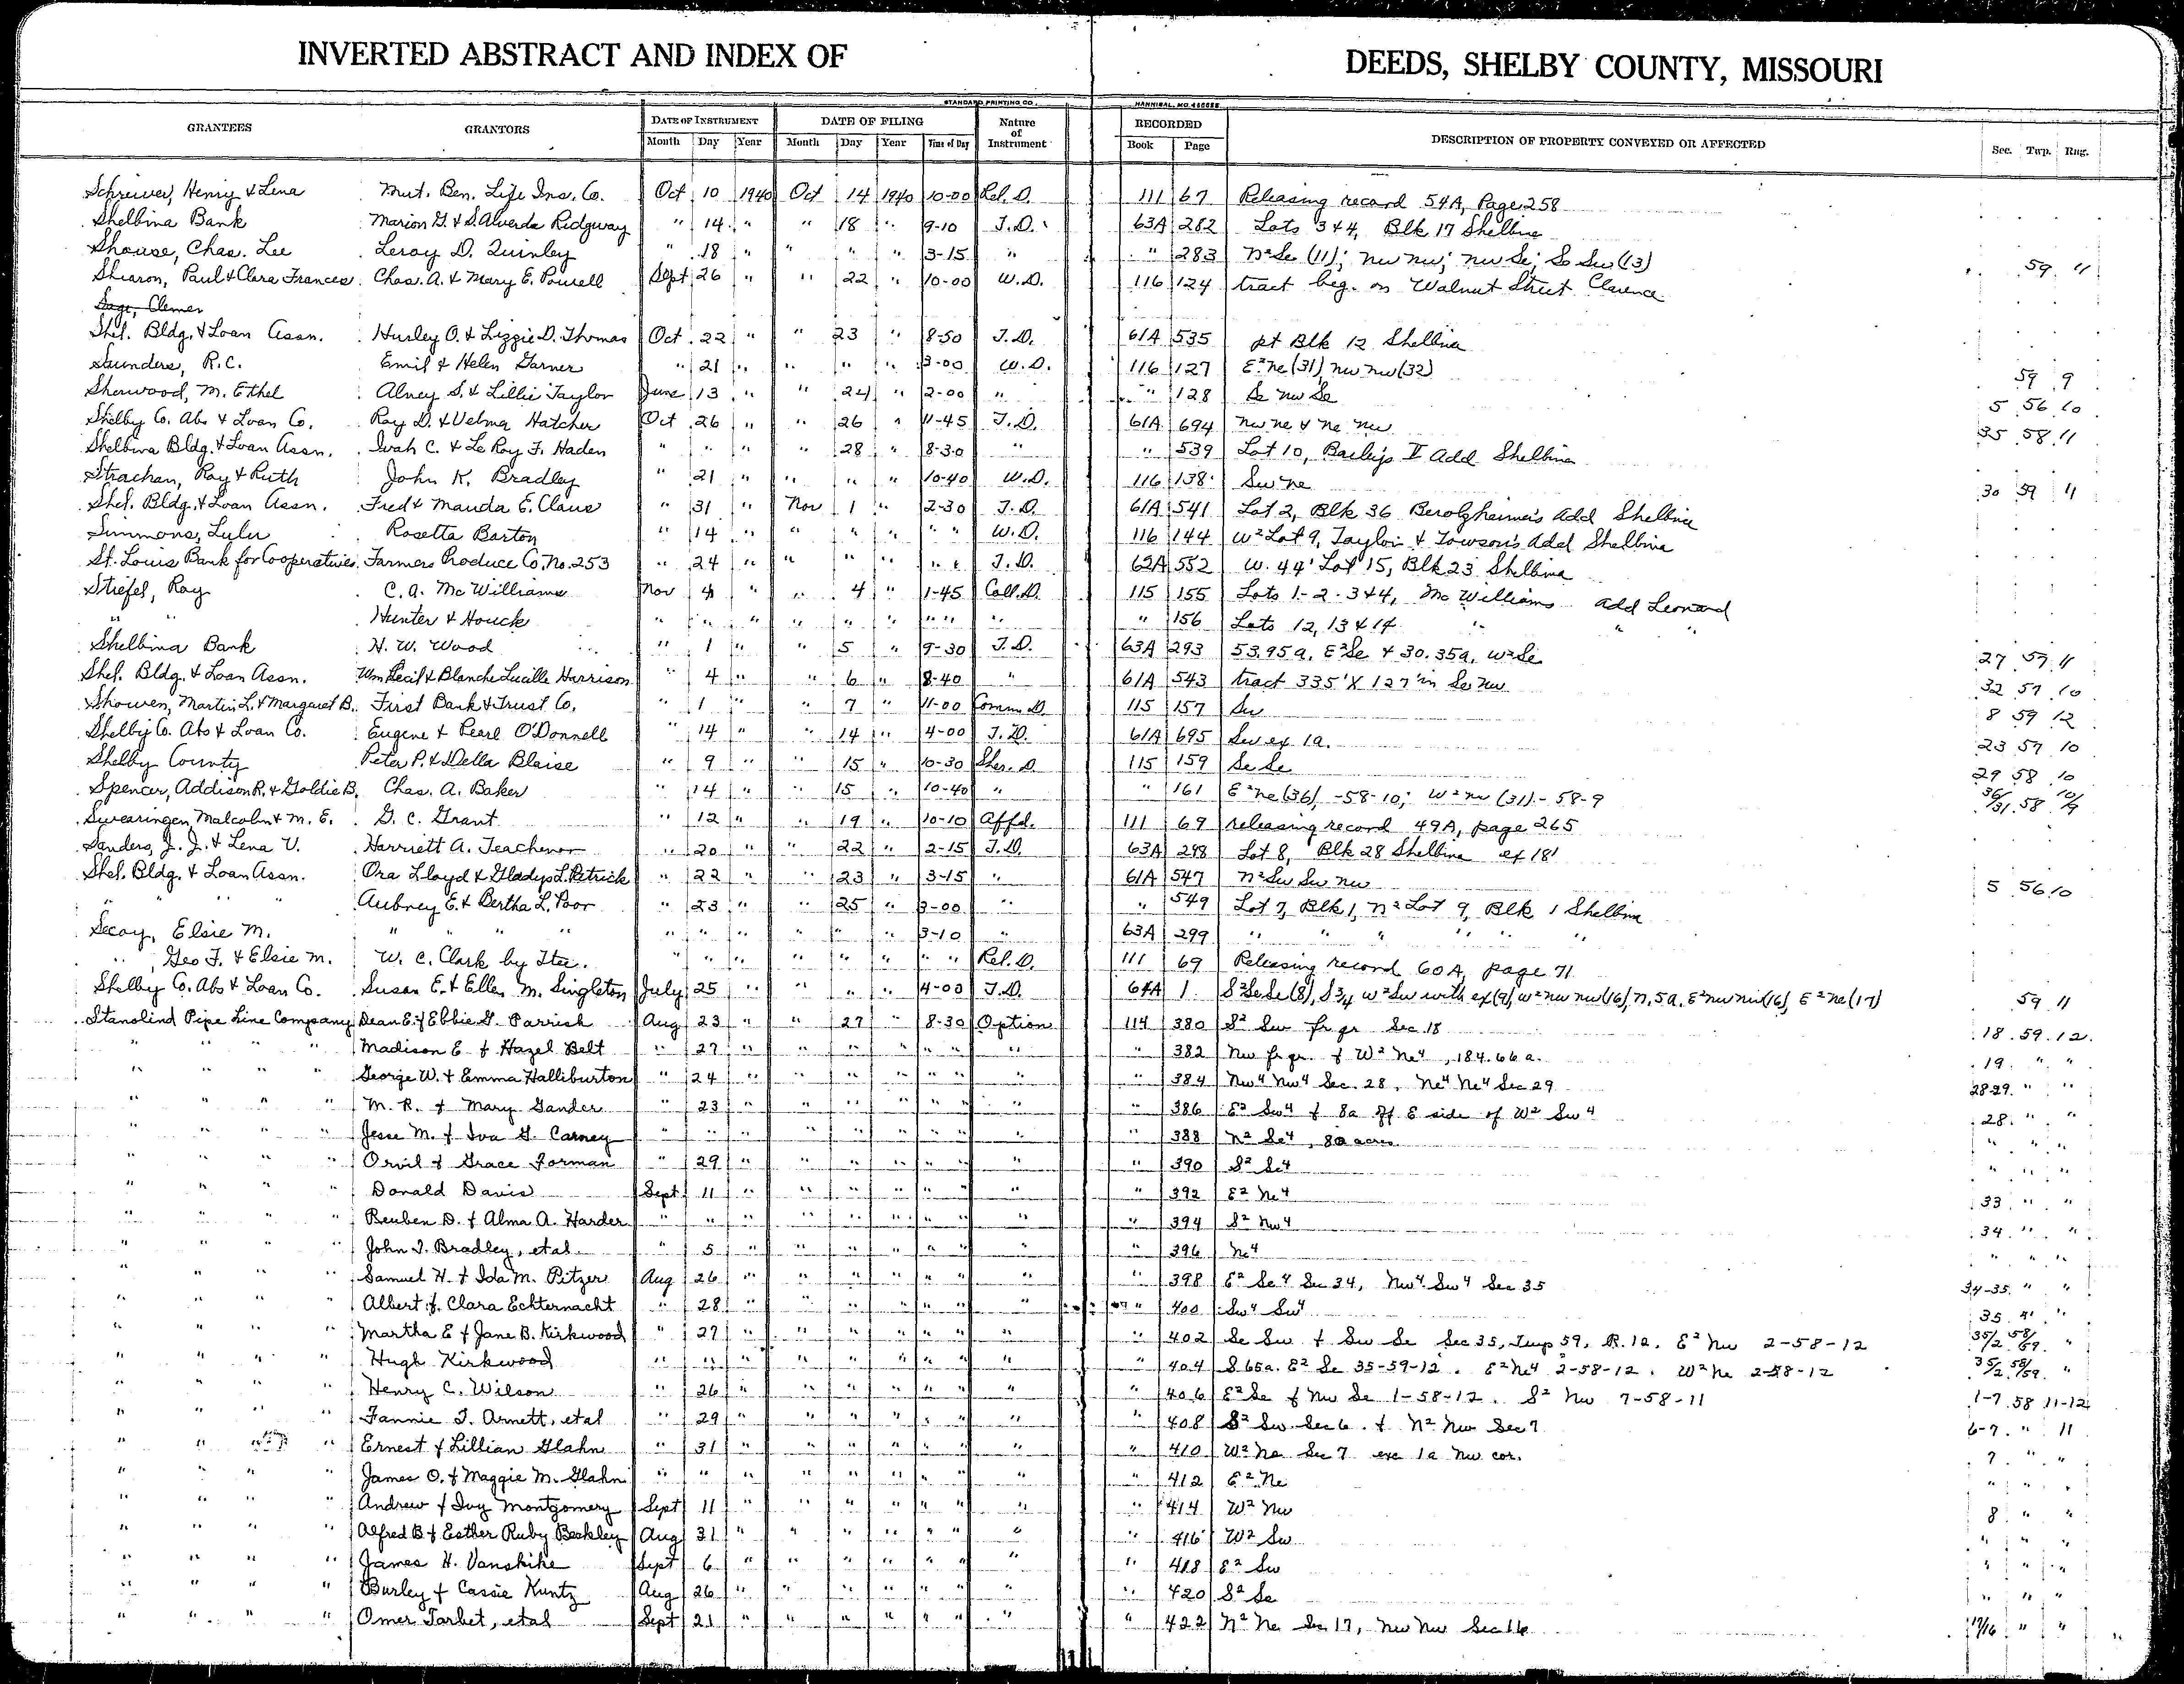 INVERTED ABSTRACT AND INDEX OF DEEDS, SHELBY COUNTY, MISSOURI
STANDARD PRINTING CO. HANNIBAL, MO.
GRANTEES GRANTORS DATE OF INSTRUMENT DATE OF FILING Nature of Instrument RECORDED DESCRIPTION OF PROPERTY CONVEYED OR AFFECTED Sec. Twp. Rng.
Month Day Year Month Day Year Time of Day Book Page
Schreiver, Henry & Lena Mut. Ben. Life Ins. Co. Oct 10 1940 Oct 14 1940 10-00 Rel. D. 111 67 Releasing record 54A, Page 258
Shelbina Bank Marion G. & S. Alverda Ridgway " 14 " " 18 " 9-10 T.D. 63A 282 Lots 3 & 4, Blk 17 Shelbina
Shouse, Chas. Lee Leroy D. Quinley " 18 " " " " 3-15 " " 283 N² Se (11); nw nw; nw Se; So Sw (13) 59 11
Sharon, Paul & Clara Frances Chas. A. & Mary E. Powell Sept 26 " " 22 " 10-00 W.D. 116 124 tract beg. on Walnut Street Clarence
Sage, Clemer
Shel. Bldg. & Loan Assn. Hurley O. & Lizzie D. Thomas Oct 22 " " 23 " 8-50 T.D. 61A 535 pt Blk 12 Shelbina
Saunders, R.C. Emil & Helen Garner " 21 " " " " 3-00 W.D. 116 127 E² ne (31), nw nw (32) 59 9
Sherwood, M. Ethel Alney S. & Lillie Taylor June 13 " " 24 " 2-00 " " 128 Se nw Se 5 56 10
Shelby Co. Abs & Loan Co. Ray D. & Velma Hatcher Oct 26 " " 26 " 11-45 T.D. 61A 694 nw ne & ne nw 35 58 11
Shelbina Bldg. & Loan Assn. Ivah C. & Le Roy F. Haden " " " " 28 " 8-30 " " 539 Lot 10, Baileys II add Shelbina
Strachan, Ray & Ruth John K. Bradley " 21 " " " " 10-40 W.D. 116 138 Sw ne 30 59 11
Shel. Bldg. & Loan Assn. Fred & Mauda E. Claus " 31 " Nov 1 " 2-30 T.D. 61A 541 Lot 2, Blk 36 Berolzheimer's Add Shelbina
Simmons, Lulu Rosetta Barton " 14 " " " " " " W.D. 116 144 W² Lot 9, Taylor & Towson's Add Shelbina
St. Louis Bank for Cooperatives Farmers Produce Co. No. 253 " 24 " " " " " " T.D. 62A 552 W. 44' Lot 15, Blk 23 Shelbina
Striefel, Roy C. A. McWilliams Nov 4 " " 4 " 1-45 Coll. D. 115 155 Lots 1-2-3 & 4, McWilliams add Leonard
" " Hunter & Houck " " " " " " " " " " 156 Lots 12, 13 & 14 " " "
Shelbina Bank H. W. Wood " 1 " " 5 " 9-30 T.D. 63A 293 53.95a. E² Se & 30.35a. W² Se 27 57 11
Shel. Bldg. & Loan Assn. Wm Cecil & Blanche Lucille Harrison " 4 " " 6 " 8-40 " 61A 543 tract 335' X 127' in Se nw 32 57 10
Showen, Martin L. & Margaret B. First Bank & Trust Co. " 1 " " 7 " 11-00 Comm. D. 115 157 Sw 8 59 12
Shelby Co. Abs & Loan Co. Eugene & Pearl O'Donnell " 14 " " 14 " 4-00 T.D. 61A 695 Sw ex 1a. 23 57 10
Shelby County Peter P. & Della Blaise " 9 " " 15 " 10-30 Sher. D. 115 159 Se Se 29 58 10
Spencer, Addison R. & Goldie B. Chas. A. Baker " 14 " " 15 " 10-40 " " 161 E² ne (36) -58-10; W² nw (31) - 58-9 36/31 58 10/9
Swearingen, Malcolm & M. E. G. C. Grant " 12 " " 19 " 10-10 Affd. 111 69 releasing record 49A, page 265
Sanders, J. J. & Lena V. Harriett A. Teachenor " 20 " " 22 " 2-15 T.D. 63A 298 Lot 8, Blk 28 Shelbina ex 18'
Shel. Bldg. & Loan Assn. Ora Lloyd & Gladys L. Petrick " 22 " " 23 " 3-15 " 61A 547 N² Sw Sw nw 5 56 10
" " " " Aubrey E. & Bertha L. Poor " 23 " " 25 " 3-00 " " 549 Lot 7, Blk 1, N² Lot 9, Blk 1 Shelbina
Secoy, Elsie M. " " " " " " " " " " 3-10 " 63A 299 " " " " " "
" , Geo F. & Elsie M. W. C. Clark by Tte. " " " " " " " " Rel. D. 111 69 Releasing record 60A, page 71
Shelby Co. Abs & Loan Co. Susan E. & Ellen M. Singleton July 25 " " " " 4-00 T.D. 64A 1 S² Se Se (8), S 3/4 W² Sw with ex (9), W² nw nw (16), N. 5a. E² nw nw (16), E² ne (17) 59 11
Stanolind Pipe Line Company Dean E. & Ebbie G. Parrish Aug 23 " " 27 " 8-30 Option 114 380 S² Sw fr qr Sec. 18 18 59 12
" " " " Madison E. & Hazel Belt " 27 " " " " " " " " 382 Nw fr qr. & W² Ne⁴, 184.66 a. 19 " "
" " " " George W. & Emma Halliburton " 24 " " " " " " " " 384 Nw⁴ Nw⁴ Sec. 28, Ne⁴ Ne⁴ Sec 29 28-29 " "
" " " " M. R. & Mary Gander " 23 " " " " " " " " 386 E² Sw⁴ & 8a off E side of W² Sw⁴ 28 " "
" " " " Jesse M. & Iva G. Carney " " " " " " " " " " 388 N² Se⁴, 80 acres " " "
" " " " Orvil & Grace Forman " 29 " " " " " " " " 390 S² Se⁴ " " "
" " " " Donald Davis Sept 11 " " " " " " " " 392 E² Ne⁴ 33 " "
" " " " Reuben D. & Alma A. Harder " " " " " " " " " " 394 S² Nw⁴ 34 " "
" " " " John T. Bradley, etal " 5 " " " " " " " " 396 Ne⁴ " " "
" " " " Samuel H. & Ida M. Pitzer Aug 26 " " " " " " " " 398 E² Se⁴ Sec 34, Nw⁴ Sw⁴ Sec 35 34-35 " "
" " " " Albert & Clara Echternacht " 28 " " " " " " " " 400 Sw⁴ Sw⁴ 35 " "
" " " " Martha E & Jane B. Kirkwood " 27 " " " " " " " " 402 Se Sw & Sw Se Sec 35, Twp 59, R. 12. E² Nw 2-58-12 35/2 58/59 "
" " " " Hugh Kirkwood " " " " " " " " " " 404 S. 65a. E² Se 35-59-12. E² Ne⁴ 2-58-12. W² Ne 2-58-12 35/2 58/59 "
" " " " Henry C. Wilson " 26 " " " " " " " " 406 E² Se & Nw Se 1-58-12. S² Nw 7-58-11 1-7 58 11-12
" " " " Fannie T. Arnett, etal " 29 " " " " " " " " 408 S² Sw Sec 6. & N² Nw Sec 7 6-7 " 11
" " " " Ernest & Lillian Glahn " 31 " " " " " " " " 410 W² Ne Sec 7 exc 1a Nw cor. 7 " "
" " " " James O. & Maggie M. Glahn " " " " " " " " " " 412 E² Ne " " "
" " " " Andrew & Ivy Montgomery Sept 11 " " " " " " " " 414 W² Nw 8 " "
" " " " Alfred B & Esther Ruby Beckley Aug 31 " " " " " " " " 416 W² Sw " " "
" " " " James H. Vanskike Sept 6 " " " " " " " " 418 E² Sw " " "
" " " " Burley & Cassie Kuntz Aug 26 " " " " " " " " 420 S² Se " " "
" " " " Omer Tarbet, etal Sept 21 " " " " " " " " 422 N² Ne Sec 17, Nw Nw Sec 16 17/16 " "